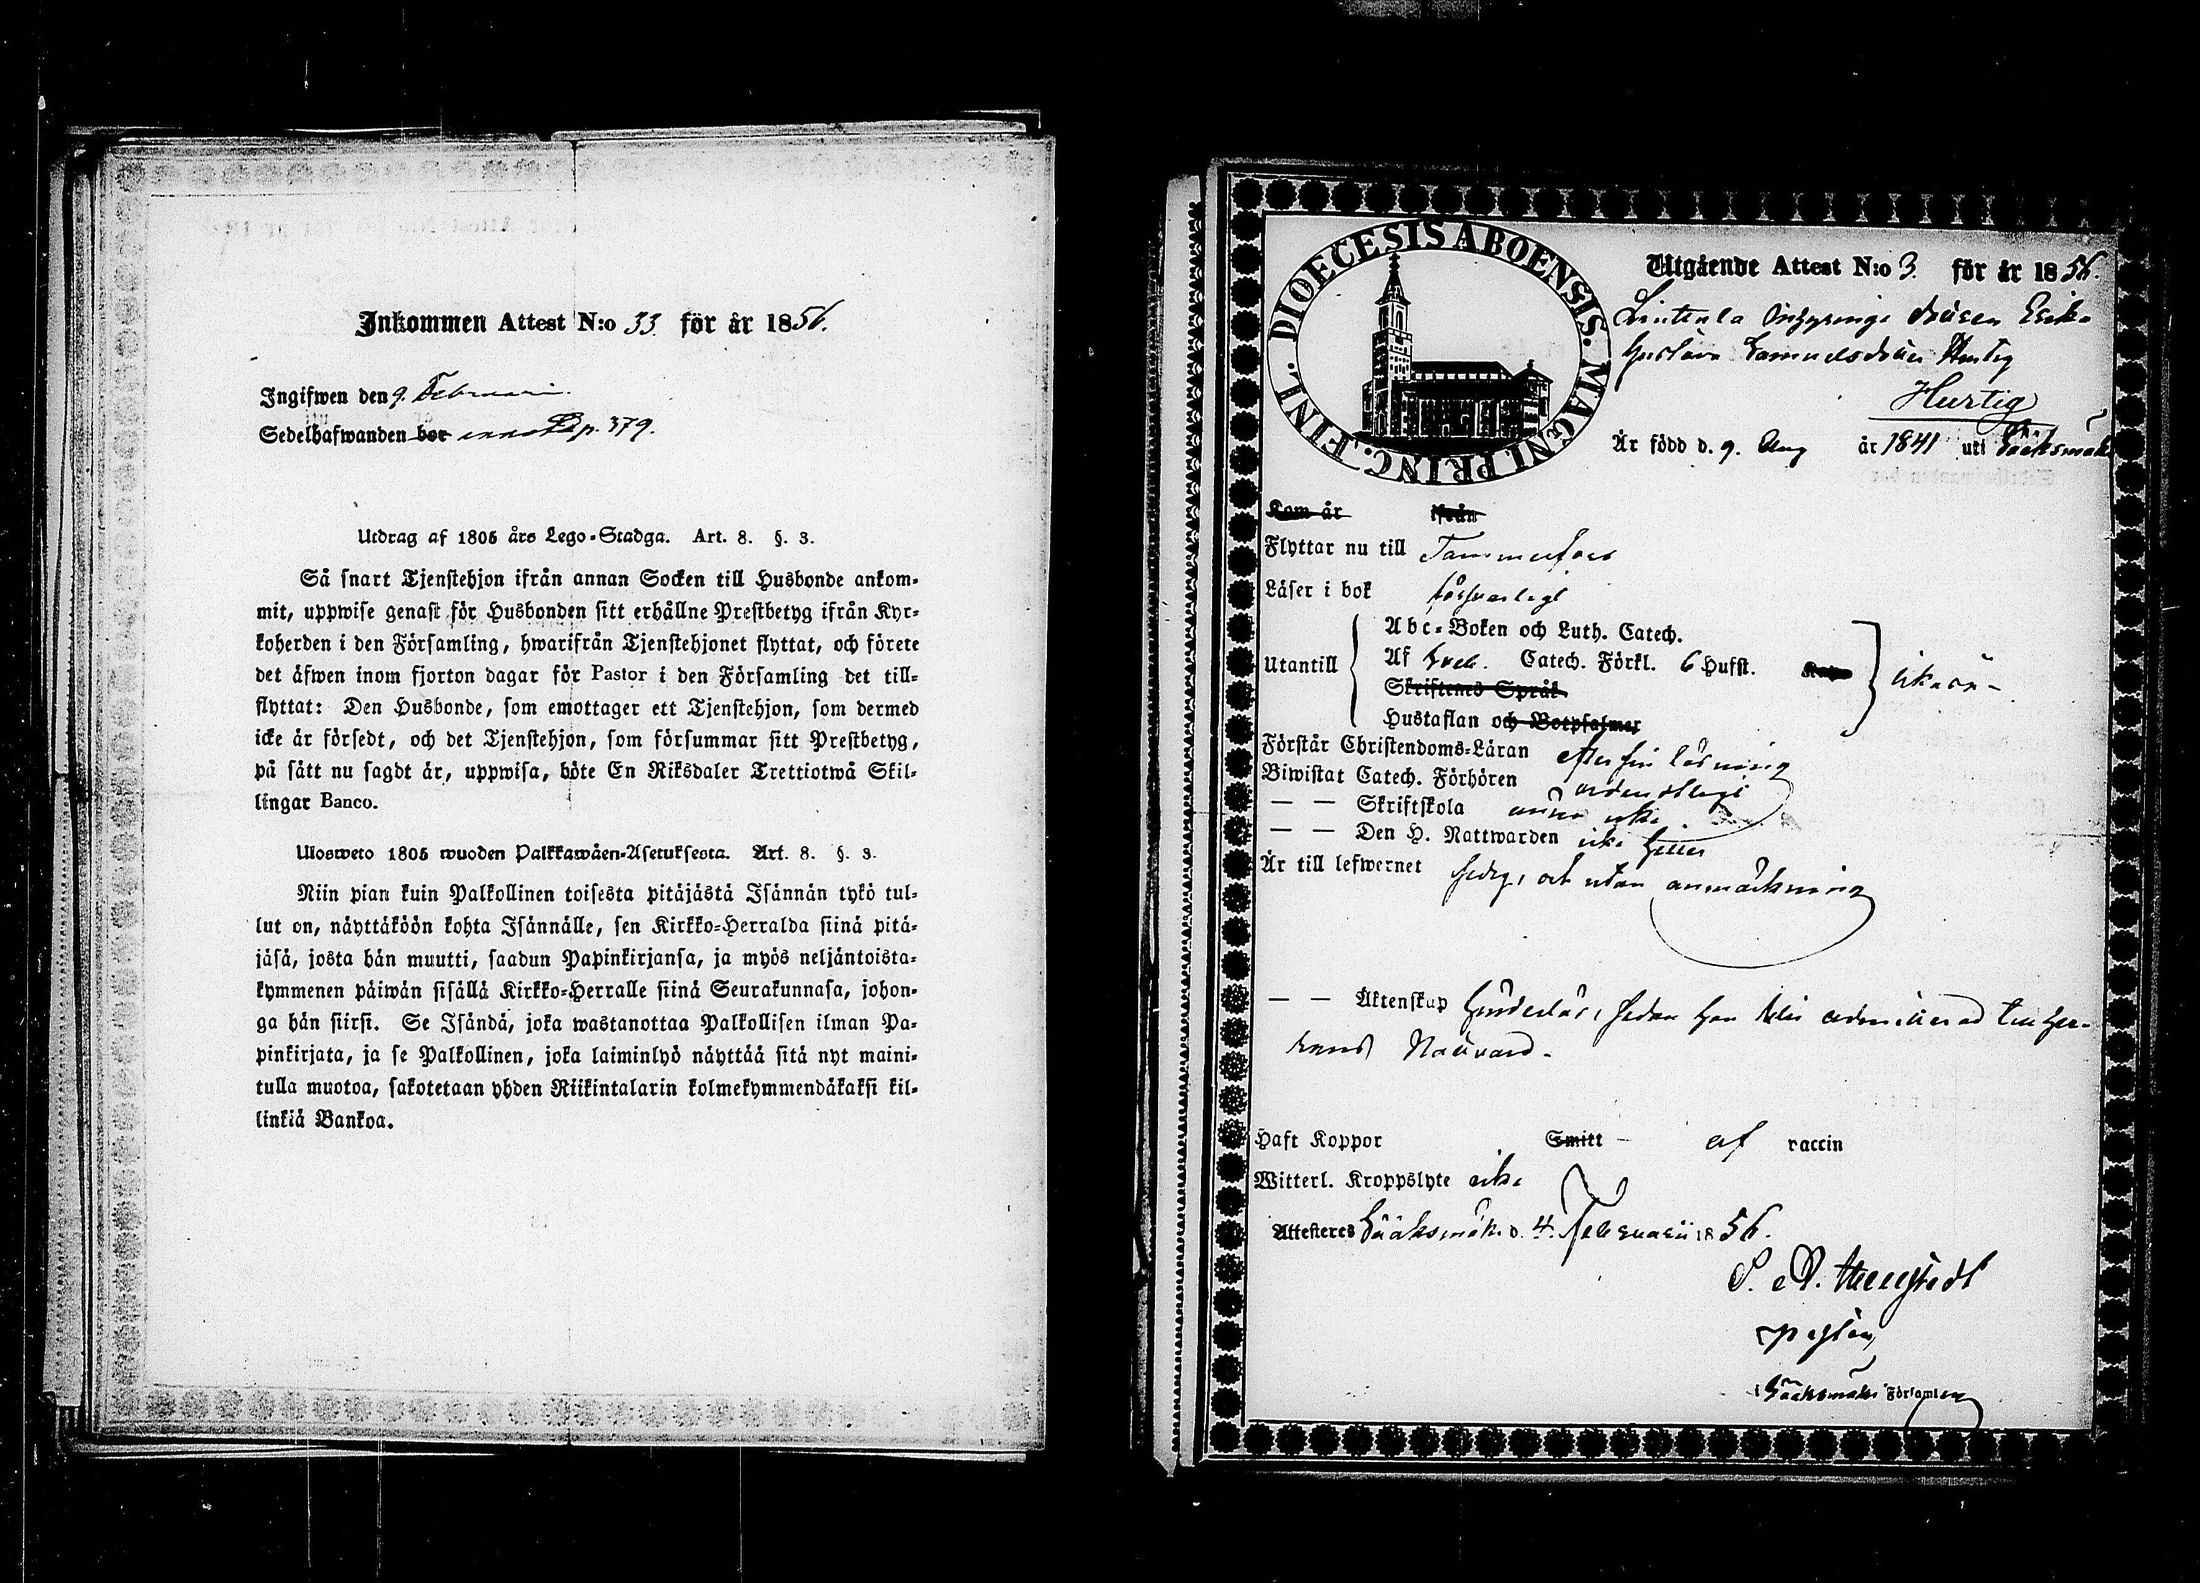 Inkommen Attest N:o 33 för år 1856.
Ingifwen den 9. Februari.
Sedelhafwanden bor p. 379.
Utdrag af 1805 års Lego-Stadga. Art. 8. §. 3.
Så snart Tjenstehjon ifrån annan Socken till Husbonde ankom-
mit, uppwise genast för Husbonden sitt erhållne Prestbetyg ifrån Kyr-
koherden i den Församling, hwarifrån Tjenstehjonet flyttat, och förete
det äfwen inom fjorton dagar för Pastor i den Församling det till-
flyttat: Den Husbonde, som emottager ett Tjenstehjon, som dermed
icke är försedt, och det Tjenstehjon, som försummar sitt Prestbetyg,
på sätt nu sagdt är, uppwisa, böte En Riksdaler Trettiotwå Skil-
lingar Banco.
Ulosweto 1805 wuoden Palkkawäen-Asetuksesta. Art. 8. §. 3.
Niin pian kuin Palkollinen toisesta pitäjästä Isännän tykö tul-
lut on, näyttäköön kohta Isännälle, sen Kirkko-Herralda siinä pitä-
jäsä, josta hän muutti, saadun Papinkirjansa, ja myös neljäntoista-
kymmenen päiwän sisällä Kirkko-Herralle siinä Seurakunnasa, johon-
ga hän siirsi. Se Isändä, joka wastanottaa Palkollisen ilman Pa-
pinkirjata, ja se Palkollinen, joka laiminlyö näyttää sitä nyt maini-
tulla muotoa, sakotetaan yhden Riikintalarin kolmekymmendäkaksi kil-
linkiä Bankoa.
DIOECESIS ABOENSIS. MAGNI PRINC. FINL.
Utgående Attest N:o 3 för år 1856.
Lintula dottren Erika
Gustava Samuelsdotter Hurtig
Hurtig
Är född d. 9. Aug år 1841 uti Sääksmäki
Kom år ifrån
Flyttar nu till Tammerfors
Läser i bok försvarligt
Utantill
Abc-Boken och Luth. Catech.
Af Sveb. Catech. Förkl. 6 Hufst.
Skriftenes Språk
Hustaflan och Botpsalmer
Förstår Christendoms-Läran efter sin läsning
Biwistat Catech. Förhören ordentligt
— — Skriftskola ännu icke
— — Den H. Nattwarden icke heller
Är till lefwernet sedig, och utan anmärkning
— — Äktenskap hinderlös, sedan hon blir admitterad till Her-
rans Nattvard.
Haft Koppor Smitt – af vaccin
Witterl. Kroppslyte icke
Attesteres Sääksmäki d. 4. Februarii 1856.
Sääksmäki Församling